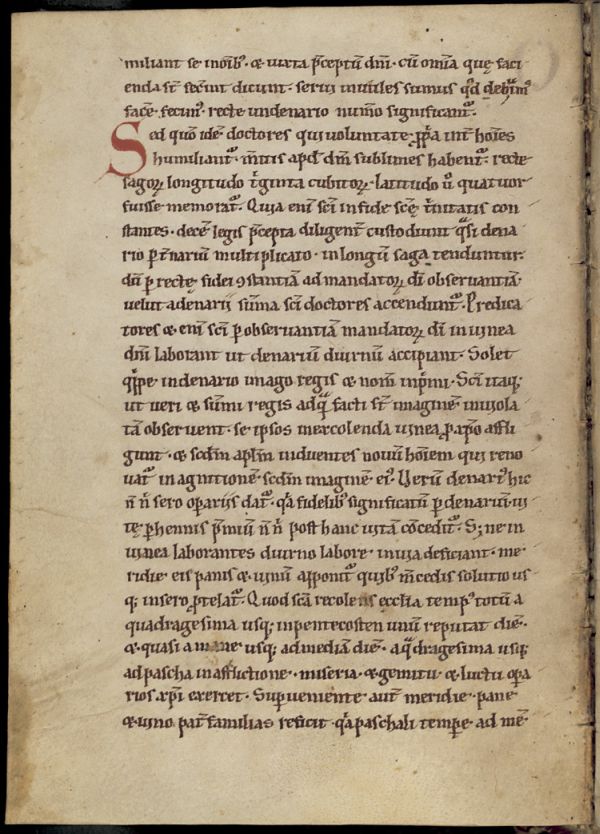 miliant se in oībꝰ· ⁊ iuxta p̄ceptū dn̄i· cū om̄ia quę faci
enda st̄ fec̄int dicunt· serui inutiles sumus qđ debuimꝰ
fac̄e fecimꝰ· recte undenario num̄o significant᷑·
Sed qm̄ idē doctores qui uoluntate ꝓp̄a int̄ hoīes
humiliant᷑· m̄itis apđ dm̄ sublimes habent᷑· recte
sagoꝝ longitudo t̄ginta cubitoꝝ· latitudo ū quatuor
fuisse memorat᷑· Quia eni sc̄i in fide scē t̄nitatis con
stantes· decē legis p̄cepta diligent̄ custodiunt q̄si dena
rio ꝑ t̄nariū multiplicato· in longū saga tenduntur·
dū ꝑ rectę fidei ꝯstantiā ad mandatoꝝ dī obseruantiā·
uelut a denarii sūma sc̄i doctores accendunt᷑· Predica
tores ⁊ eni sc̄i ꝑ obseruantiā mandatoꝝ dī in uinea
dn̄i laborant ut denariū diurnū accipiant· Solet
q̄ppe in denario imago regis ⁊ nom̄ inp̄mi· Sc̄i itaqꝫ
ut ueri ⁊ sūmi regis ad q̄ facti st̄ imaginē inuiola
tā obseruent· se ipsos in excolenda uinea ꝓ xp̄o affli
gunt· ⁊ scđm aplm̄ induentes nouū hoīem qui reno
uat᷑ in agnitionē· scđm imaginē eiꝰ· Uerū denariꝰ hic
n̄ n̄ sero oꝑariis dat᷑· q̄a fidelibꝰ significatū ꝑ denariū ui
tę ꝑhennis p̄miū n̄ n̄ post hanc uitā cōcedit᷑· Sꝫ ne in
uinea laborantes diurno labore· in uia deficiant· me
ridie eis panis ⁊ uinū apponit᷑ quibꝰ m̄cedis solutio us
qꝫ in sero ꝓtelat᷑· Quod scā recolens ecclīa tempꝰ totū a
quadragesima usqꝫ in pentecosten unū reputat diē·
⁊ quasi a mane usqꝫ ad mediā diē· a q̄dragesima usqꝫ
ad pascha in afflictione· miseria· ⁊ gemitu· ⁊ luctu oꝑa
rios xp̄i exercet· Superueniente aut̄ meridie· pane
⁊ uino pat̄ familias reficit· q̄a paschali tempe· ad mē·